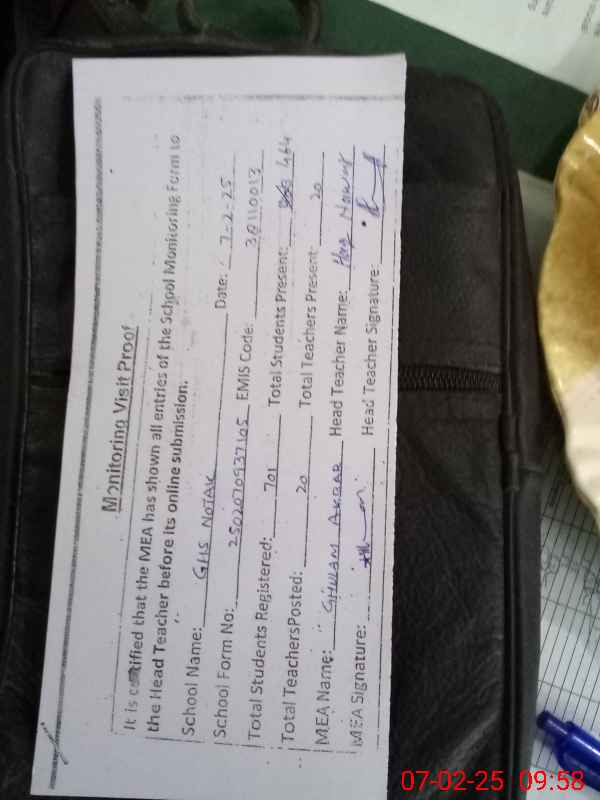 Monitoring Visit Proof
It is certified that the MEA has shown all entries of the School Monitoring Form to
the Head Teacher before its online submission.
School Name: GHS NOTAK Date: 7-2-25
School Form No: 2502070937105 EMIS Code: 30110013
Total Students Registered: 701 Total Students Present: 464
Total Teachers Posted: 20 Total Teachers Present: 20
MEA Name: GHULAM AKBAR Head Teacher Name: Haq Nawaz
MEA Signature: Head Teacher Signature:
07-02-25 09:58